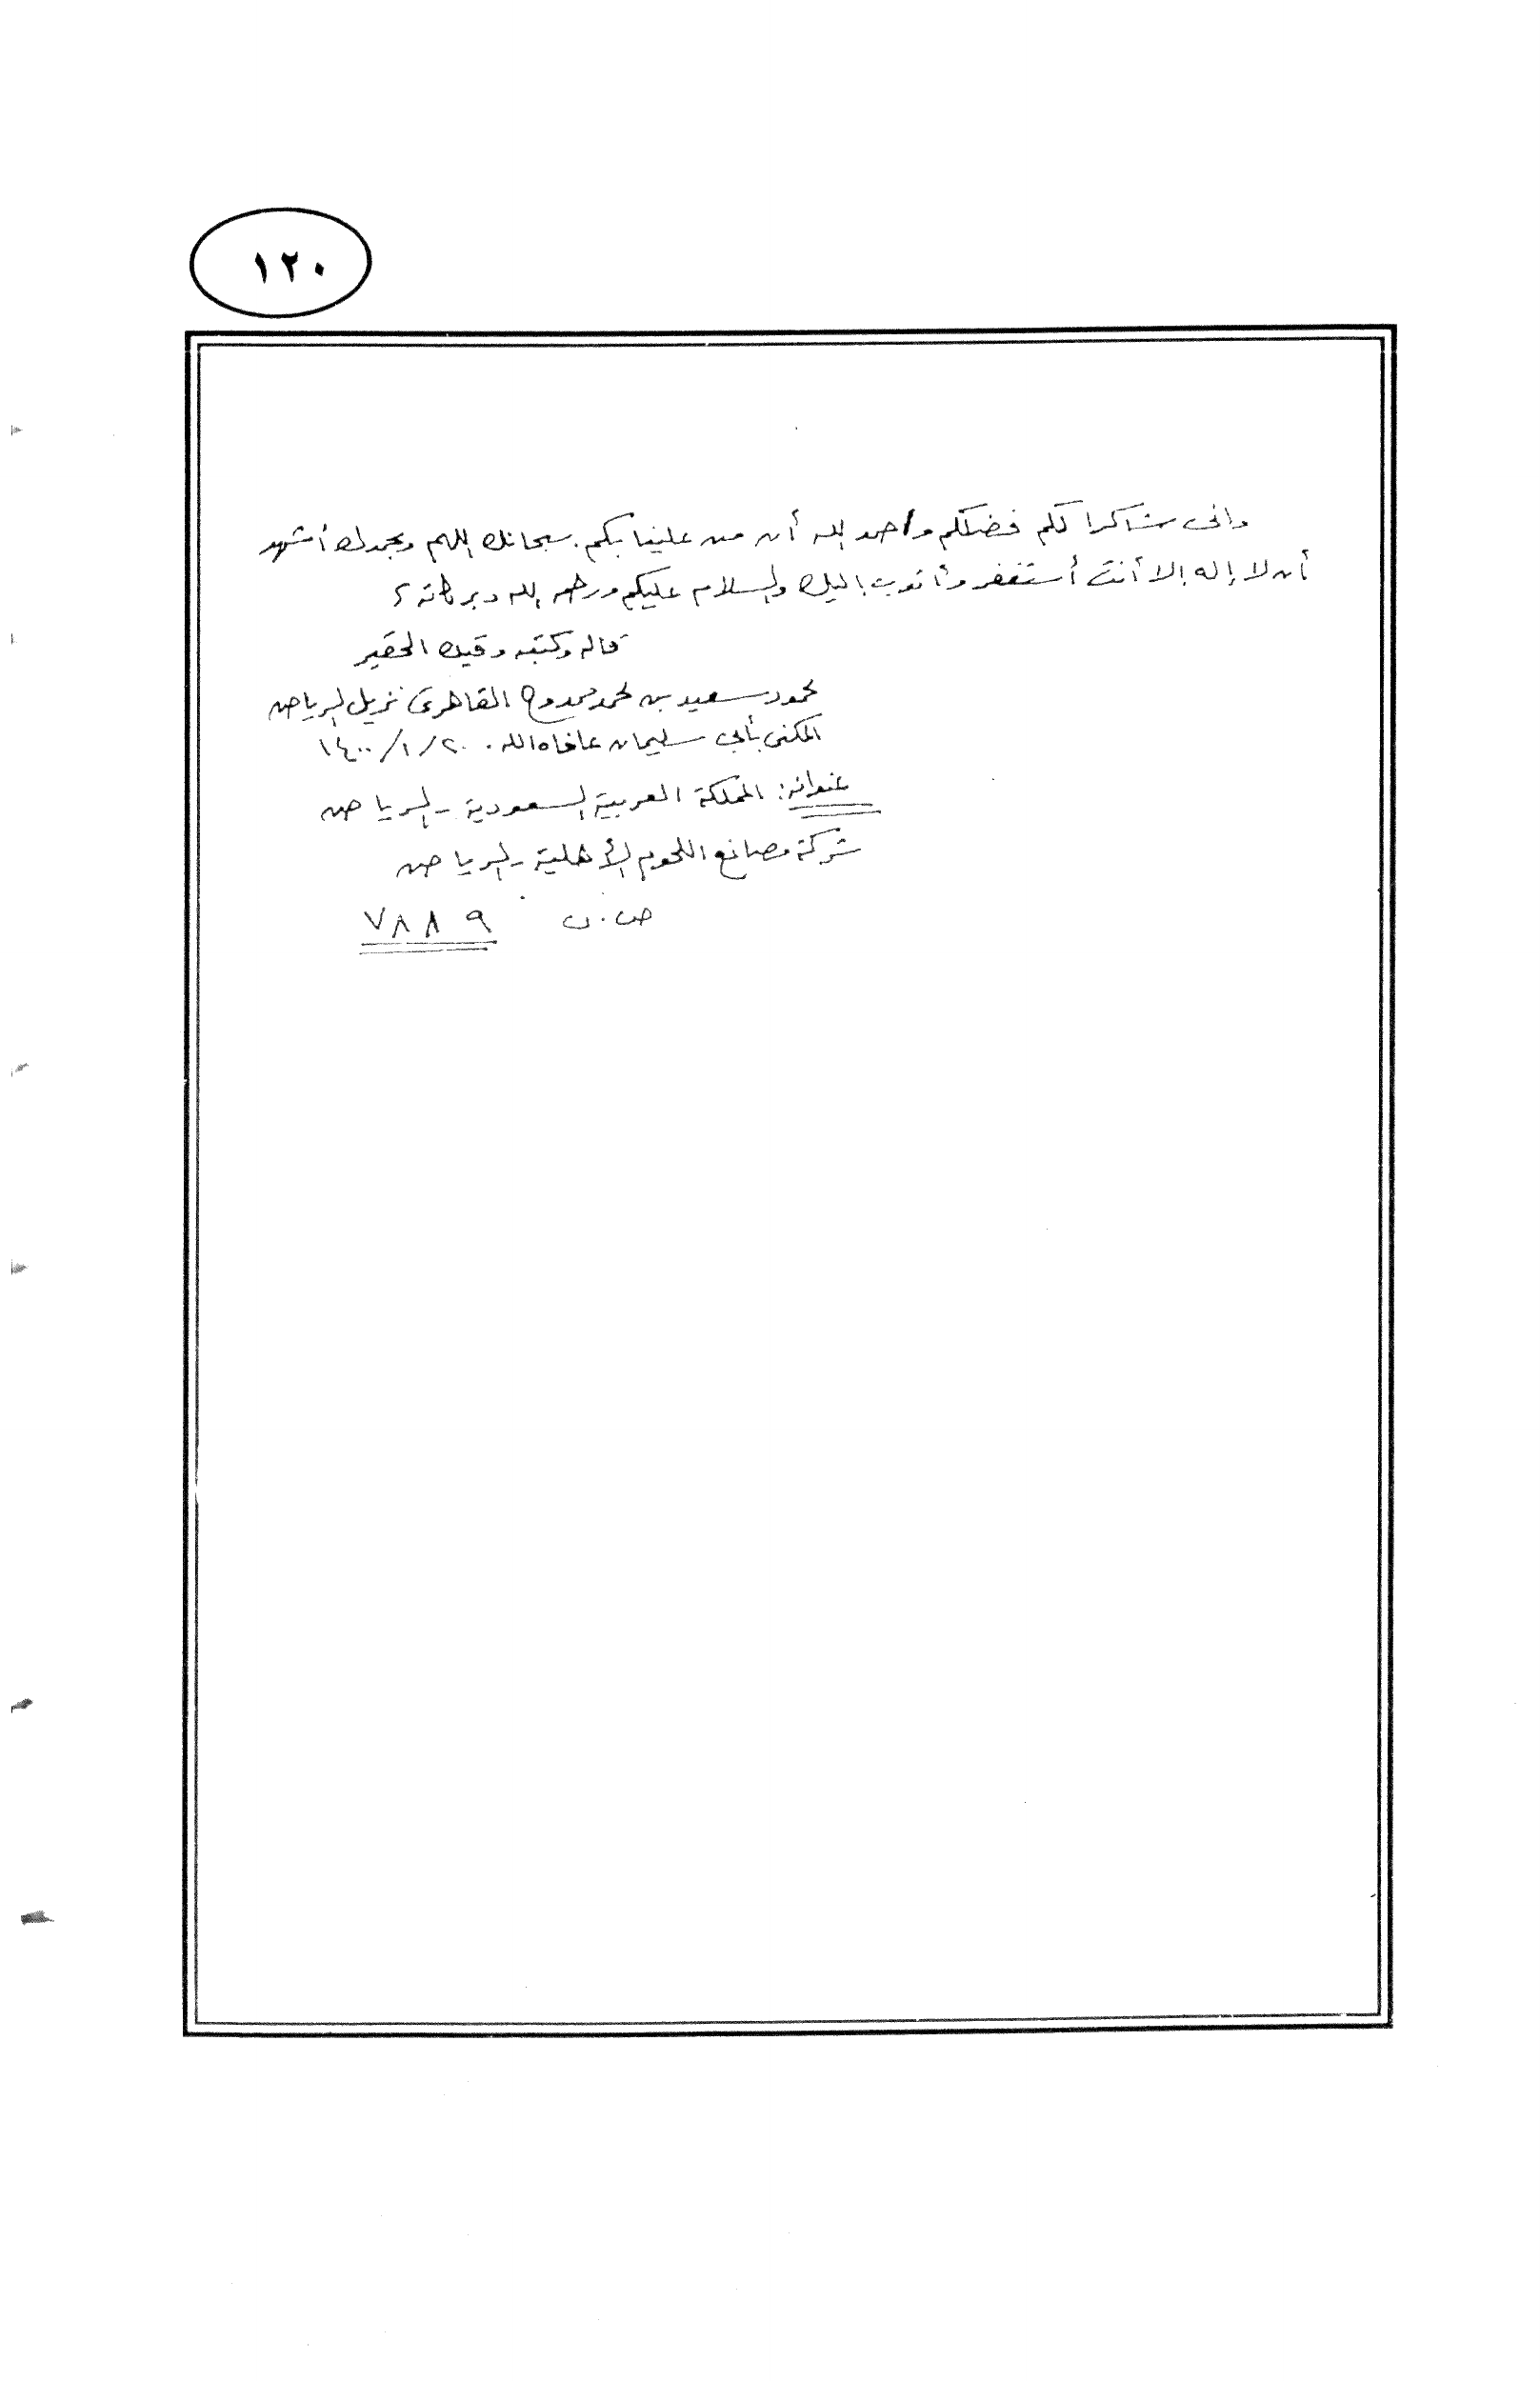 ١٢٠
وانى شاكرا لكم فضلكم وأحمد الله أن من علينا بكم. سبحانك اللهم وبحمدك أشهد
أن لا إله إلا أنت أستغفر وأتوب إليك والسلام عليكم ورحمة الله وبركاته
قاله وكتبه وقيده الحقير
محمود سعيد بن محمد ممدوح القاهرى نزيل الرياض
المكنى بأبى سليمان عافاه الله. ٢٠/١/١٤٠٠
عنوانه: المملكة العربية السعودية - الرياض
شركة مصانع اللحوم الأهلية - الرياض
ص. ب ٧٨٨٩